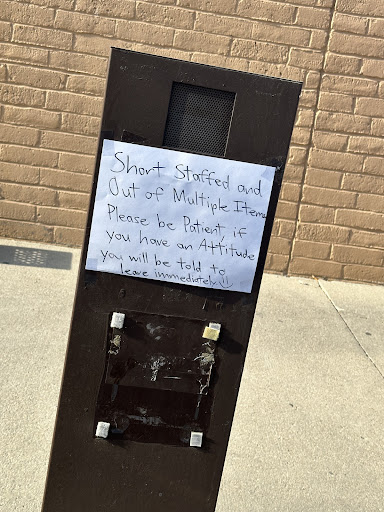 Short Staffed and
Out of Multiple Items
Please be Patient if
you have an Attitude
you will be told to
leave immediately :)